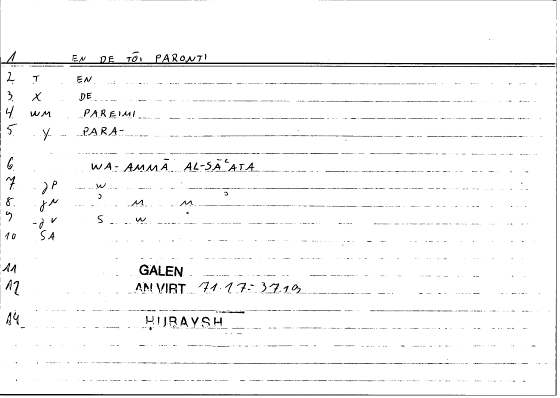 1 EN DE TŌI PARONTI
2 T EN
3 X DE
4 WM PAREIMI
5 Y PARA-
6 WA-AMMĀ AL-SĀʿATA
7 gP W
8 gN ʾ M M ʾ
9 gV S W
10 SA
11 GALEN
12 AN VIRT 71.17-3719
14 ḤUBAYSH